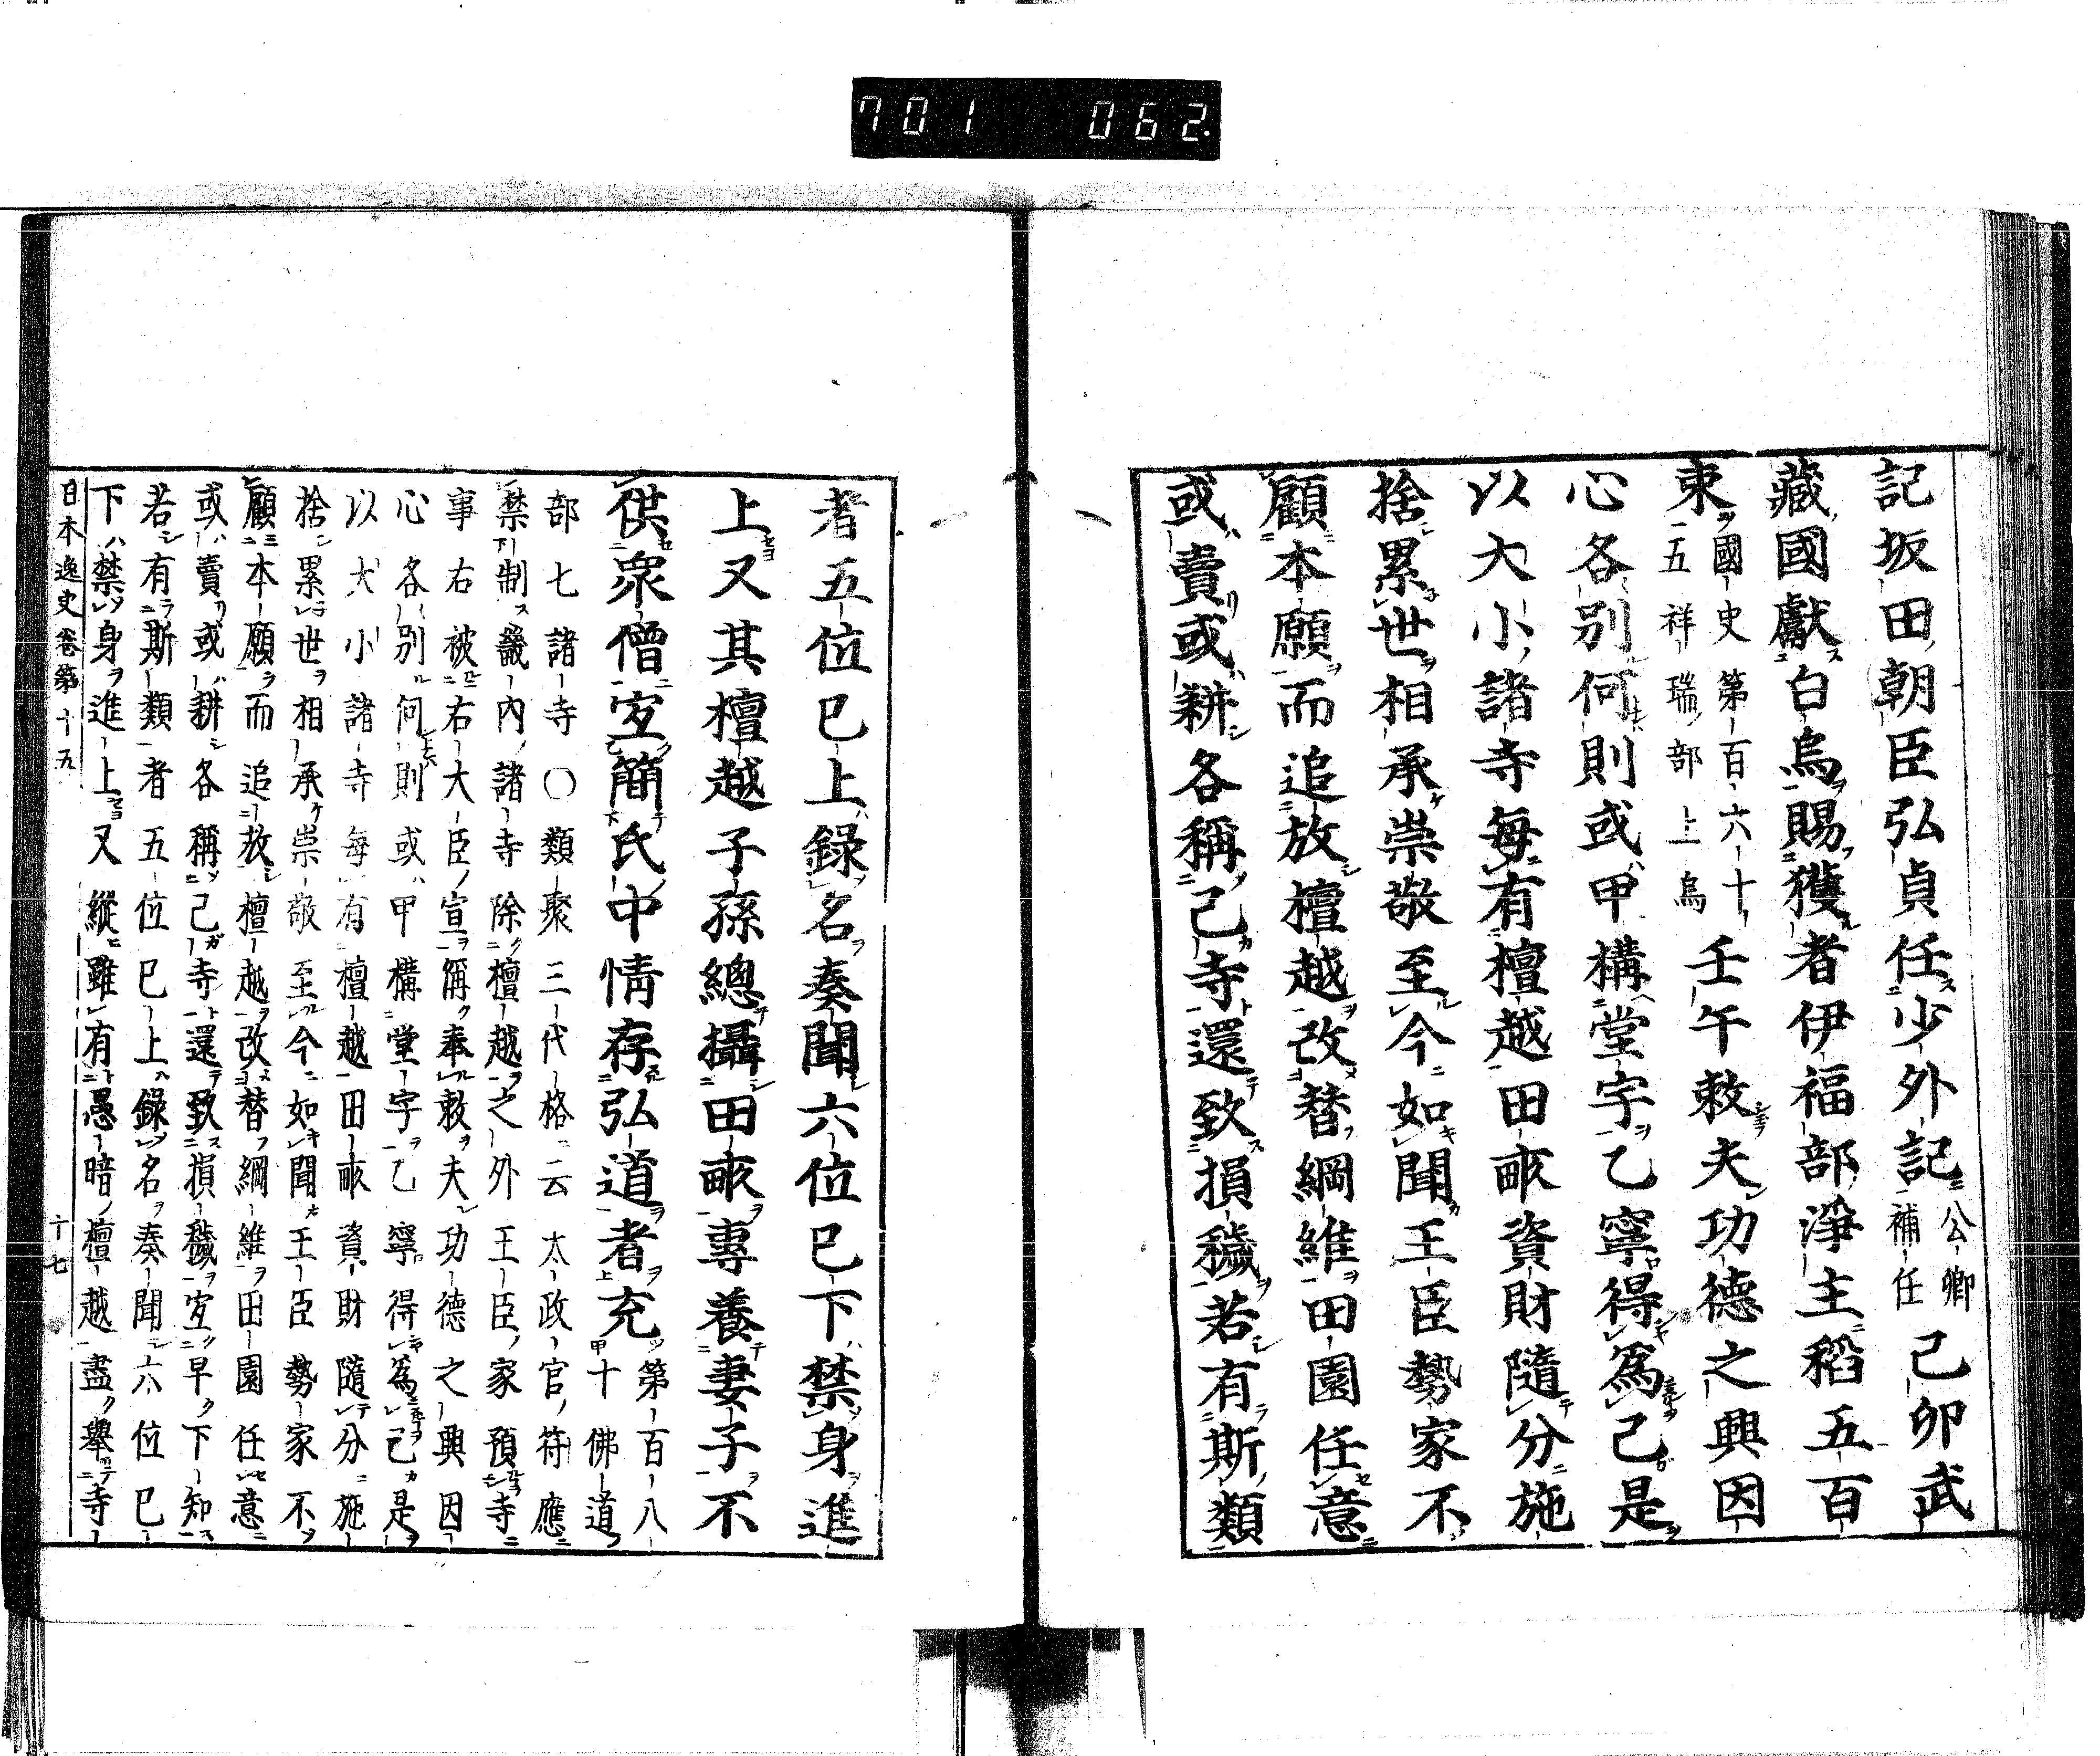 701 062.
記坂田朝臣弘貞任少外記公卿補任己卯武
藏國獻白烏賜獲者伊福部淨主稻五百
束國史第百六十五祥瑞部上烏壬午敕夫功德之興因
心各別何則或甲構堂宇乙寧得爲己是
以大小諸寺每有檀越田畝資財隨分施
捨累世相承崇敬至今如聞王臣勢家不
顧本願而追放檀越改替綱維田園任意
或賣或耕各稱己寺還致損穢若有斯類
者五位已上錄名奏聞六位已下禁身進
上又其檀越子孫總攝田畝專養妻子不
供衆僧宜簡氏中情存弘道者充第百八十佛道
部七諸寺〇類聚三代格云太政官符應
禁制畿内諸寺除檀越之外王臣家預寺
事右被右大臣宣偁奉敕夫功德之興因
心各別何則或甲構堂宇乙寧得爲己是
以大小諸寺每有檀越田畝資財隨分施
捨累世相承崇敬至今如聞王臣勢家不
顧本願而追放檀越改替綱維田園任意
或賣或耕各稱己寺還致損穢宜早下知
若有斯類者五位已上錄名奏聞六位已
下禁身進上又縱雖有愚暗檀越盡擧寺
日本逸史卷第十五 十七